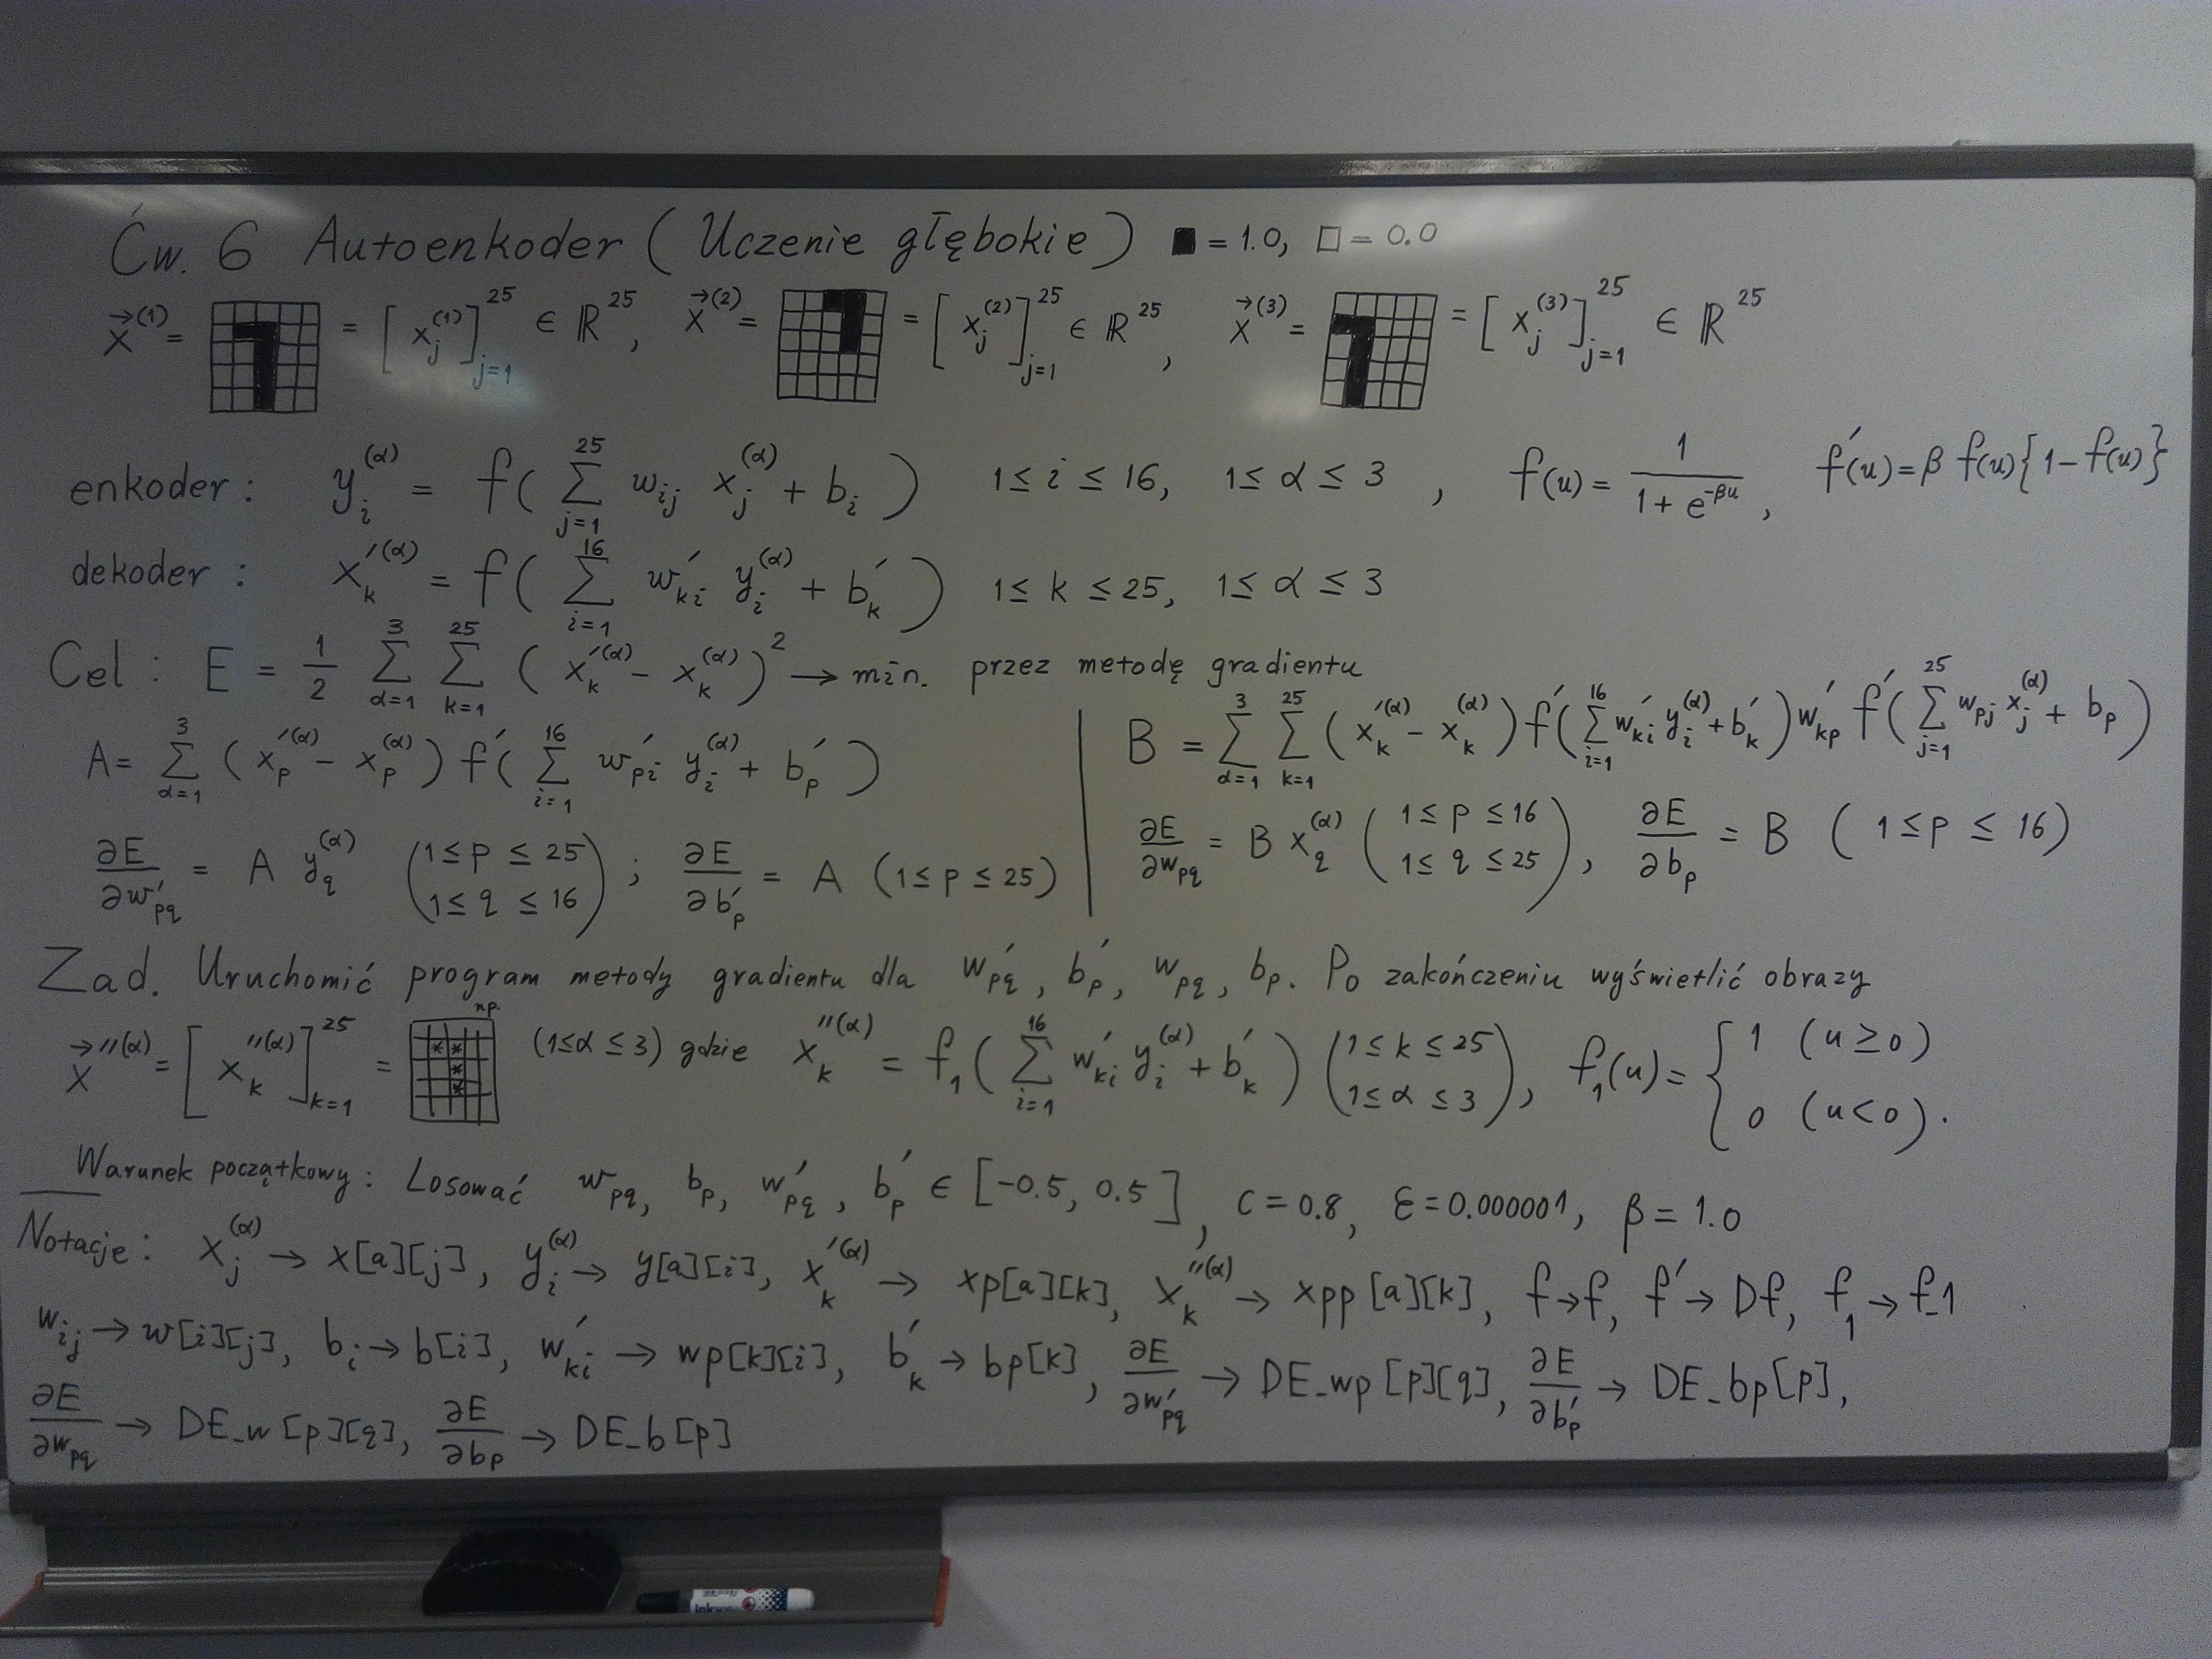 Ćw. 6 Autoenkoder (Uczenie głębokie) ■ = 1.0, □ = 0.0
x⃗⁽¹⁾ = = [x_j^(1)]_{j=1}^{25} ∈ ℝ^25, x⃗⁽²⁾ = = [x_j^(2)]_{j=1}^{25} ∈ ℝ^25, x⃗⁽³⁾ = = [x_j^(3)]_{j=1}^{25} ∈ ℝ^25
enkoder: y_i^(α) = f( Σ_{j=1}^{25} w_ij x_j^(α) + b_i ) 1 ≤ i ≤ 16, 1 ≤ α ≤ 3, f(u) = 1/(1 + e^{-βu}), f'(u) = β f(u){1 - f(u)}
dekoder: x'_k^(α) = f( Σ_{i=1}^{16} w'_ki y_i^(α) + b'_k ) 1 ≤ k ≤ 25, 1 ≤ α ≤ 3
Cel: E = 1/2 Σ_{α=1}^{3} Σ_{k=1}^{25} ( x'_k^(α) - x_k^(α) )^2 → min. przez metodę gradientu
A = Σ_{α=1}^{3} ( x'_p^(α) - x_p^(α) ) f'( Σ_{i=1}^{16} w'_pi y_i^(α) + b'_p )
∂E/∂w'_pq = A y_q^(α) (1 ≤ p ≤ 25, 1 ≤ q ≤ 16); ∂E/∂b'_p = A (1 ≤ p ≤ 25)
B = Σ_{α=1}^{3} Σ_{k=1}^{25} ( x'_k^(α) - x_k^(α) ) f'( Σ_{i=1}^{16} w'_ki y_i^(α) + b'_k ) w'_kp f'( Σ_{j=1}^{25} w_pj x_j^(α) + b_p )
∂E/∂w_pq = B x_q^(α) (1 ≤ p ≤ 16, 1 ≤ q ≤ 25), ∂E/∂b_p = B (1 ≤ p ≤ 16)
Zad. Uruchomić program metody gradientu dla w'_pq, b'_p, w_pq, b_p. Po zakończeniu wyświetlić obrazy
np.
x⃗''^(α) = [x''_k^(α)]_{k=1}^{25} = * * * * (1≤α≤3) gdzie x''_k^(α) = f_1( Σ_{i=1}^{16} w'_ki y_i^(α) + b'_k ) (1 ≤ k ≤ 25, 1 ≤ α ≤ 3), f_1(u) = { 1 (u ≥ 0) 0 (u < 0).
Warunek początkowy: Losować w_pq, b_p, w'_pq, b'_p ∈ [-0.5, 0.5], c = 0.8, ε = 0.000001, β = 1.0
Notacje: x_j^(α) → x[a][j], y_i^(α) → y[a][i], x'_k^(α) → xp[a][k], x''_k^(α) → xpp[a][k], f → f, f' → Df, f_1 → f_1
w_ij → w[i][j], b_i → b[i], w'_ki → wp[k][i], b'_k → bp[k], ∂E/∂w'_pq → DE_wp[p][q], ∂E/∂b'_p → DE_bp[p],
∂E/∂w_pq → DE_w[p][q], ∂E/∂b_p → DE_b[p]